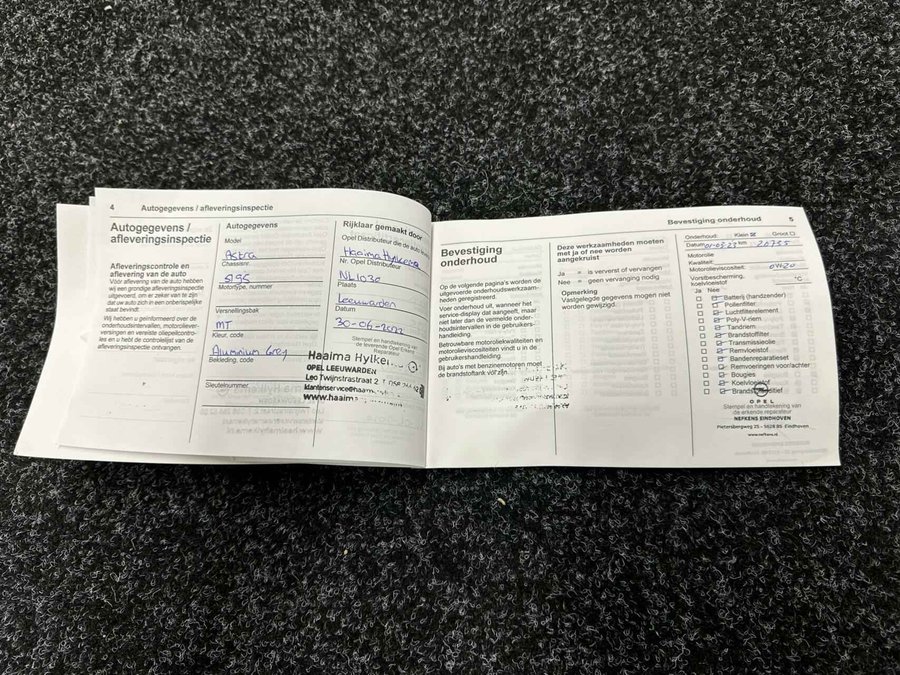 4 Autogegevens / afleveringsinspectie
Autogegevens /
afleveringsinspectie
Afleveringscontrole en
aflevering van de auto
Vóór aflevering van de auto hebben
wij een grondige afleveringsinspectie
uitgevoerd, om er zeker van te zijn
dat uw auto zich in een onberispelijke
staat bevindt.
Wij hebben u geïnformeerd over de
onderhoudsintervallen, motorolieverversingen
en vereiste oliepeilcontroles
en u hebt de controlelijst van de
afleveringsinspectie ontvangen.
Autogegevens
Model
Astra
Chassisnr.
5195
Motortype, nummer
Versnellingsbak
MT
Kleur, code
Aluminium Grey
Bekleding, code
Sleutelnummer
Rijklaar gemaakt door
Opel Distributeur die de auto
Haaima Hylkema
Nr. Opel Distributeur
NL1030
Plaats
Leeuwarden
Datum
30-06-2022
Stempel en handtekening van
de leverende Opel Erkend
Reparateur
Haaima Hylke
OPEL LEEUWARDEN
Leo Twijnstrastraat 2
klantenservice@haaim
www.haaim
Bevestiging onderhoud 5
Bevestiging
onderhoud
Op de volgende pagina's worden de
uitgevoerde onderhoudswerkzaamheden
geregistreerd.
Voer onderhoud uit, wanneer het
service-display dat aangeeft, maar
niet later dan de vermelde onderhoudsintervallen
in de gebruikershandleiding.
Betrouwbare motoroliekwaliteiten en
motorolieviscositeiten vindt u in de
gebruikershandleiding.
Bij auto's met benzinemotoren moet
de brandstoftank vol zijn.
Deze werkzaamheden moeten
met ja of nee worden
aangekruist
Ja = is ververst of vervangen
Nee = geen vervanging nodig
Opmerking
Vastgelegde gegevens mogen niet
worden gewijzigd.
Onderhoud: Klein Groot
Datum 01-05-23 km 20755
Motorolie
Kwaliteit:
Motorolieviscositeit: 0W20
Vorstbescherming,
koelvloeistof °C
Ja Nee
Batterij (handzender)
Pollenfilter
Luchtfilterelement
Poly-V-riem
Tandriem
Brandstoffilter
Transmissieolie
Remvloeistof
Bandenreparatieset
Remvoeringen voor/achter
Bougies
Koelvloeistof
OPEL
Stempel en handtekening van
de erkende reparateur
NEFKENS EINDHOVEN
Pietersbergweg 25 - 5628 BS Eindhoven
www.nefkens.nl